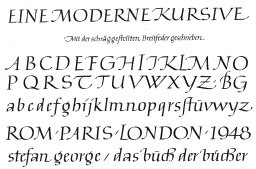 EINE MODERNE KURSIVE
Mit der schräggestellten Breitfeder geschrieben.
A B C D E F G H I J K L M N O
P Q R S T U V W X Y Z · B G
a b c d e f g h i j k l m n o p q r s ſ t ü v w y z
ROM · PARIS · LONDON · 1948
stefan george / das büch der bücher